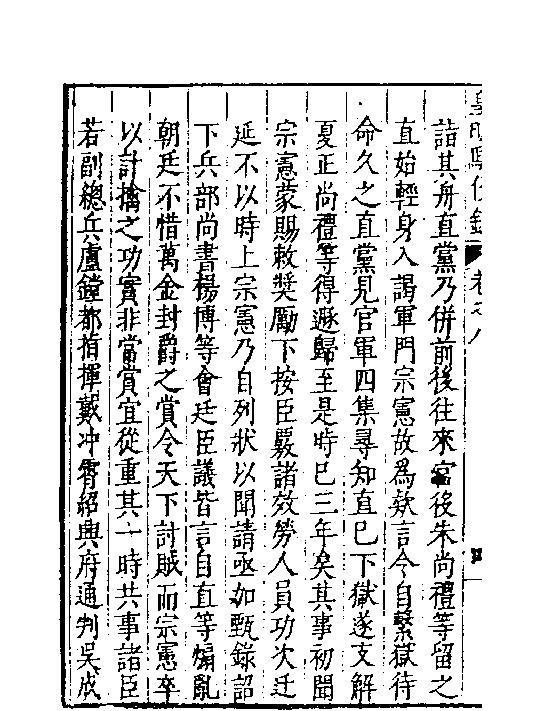 皇明馭倭錄 卷之八
詣其舟直黨乃併前後往來官後朱尚禮等留之
直始輕身入謁軍門宗憲故爲欵言令自繫獄待
命久之直黨見官軍四集尋知直已下獄遂支解
夏正尚禮等得遯歸至是時已三年矣其事初聞
宗憲蒙賜敕奬勵下按臣覈諸效勞人員功次迁
延不以時上宗憲乃自列狀以聞請亟加甄錄詔
下兵部尚書楊博等會廷臣議皆言自直等煽亂
朝廷不惜萬金封爵之賞令天下討賊而宗憲卒
以計擒之功實非當賞宜從重其一時共事諸臣
若副總兵盧鏜都指揮戴冲霄紹興府通判吳成